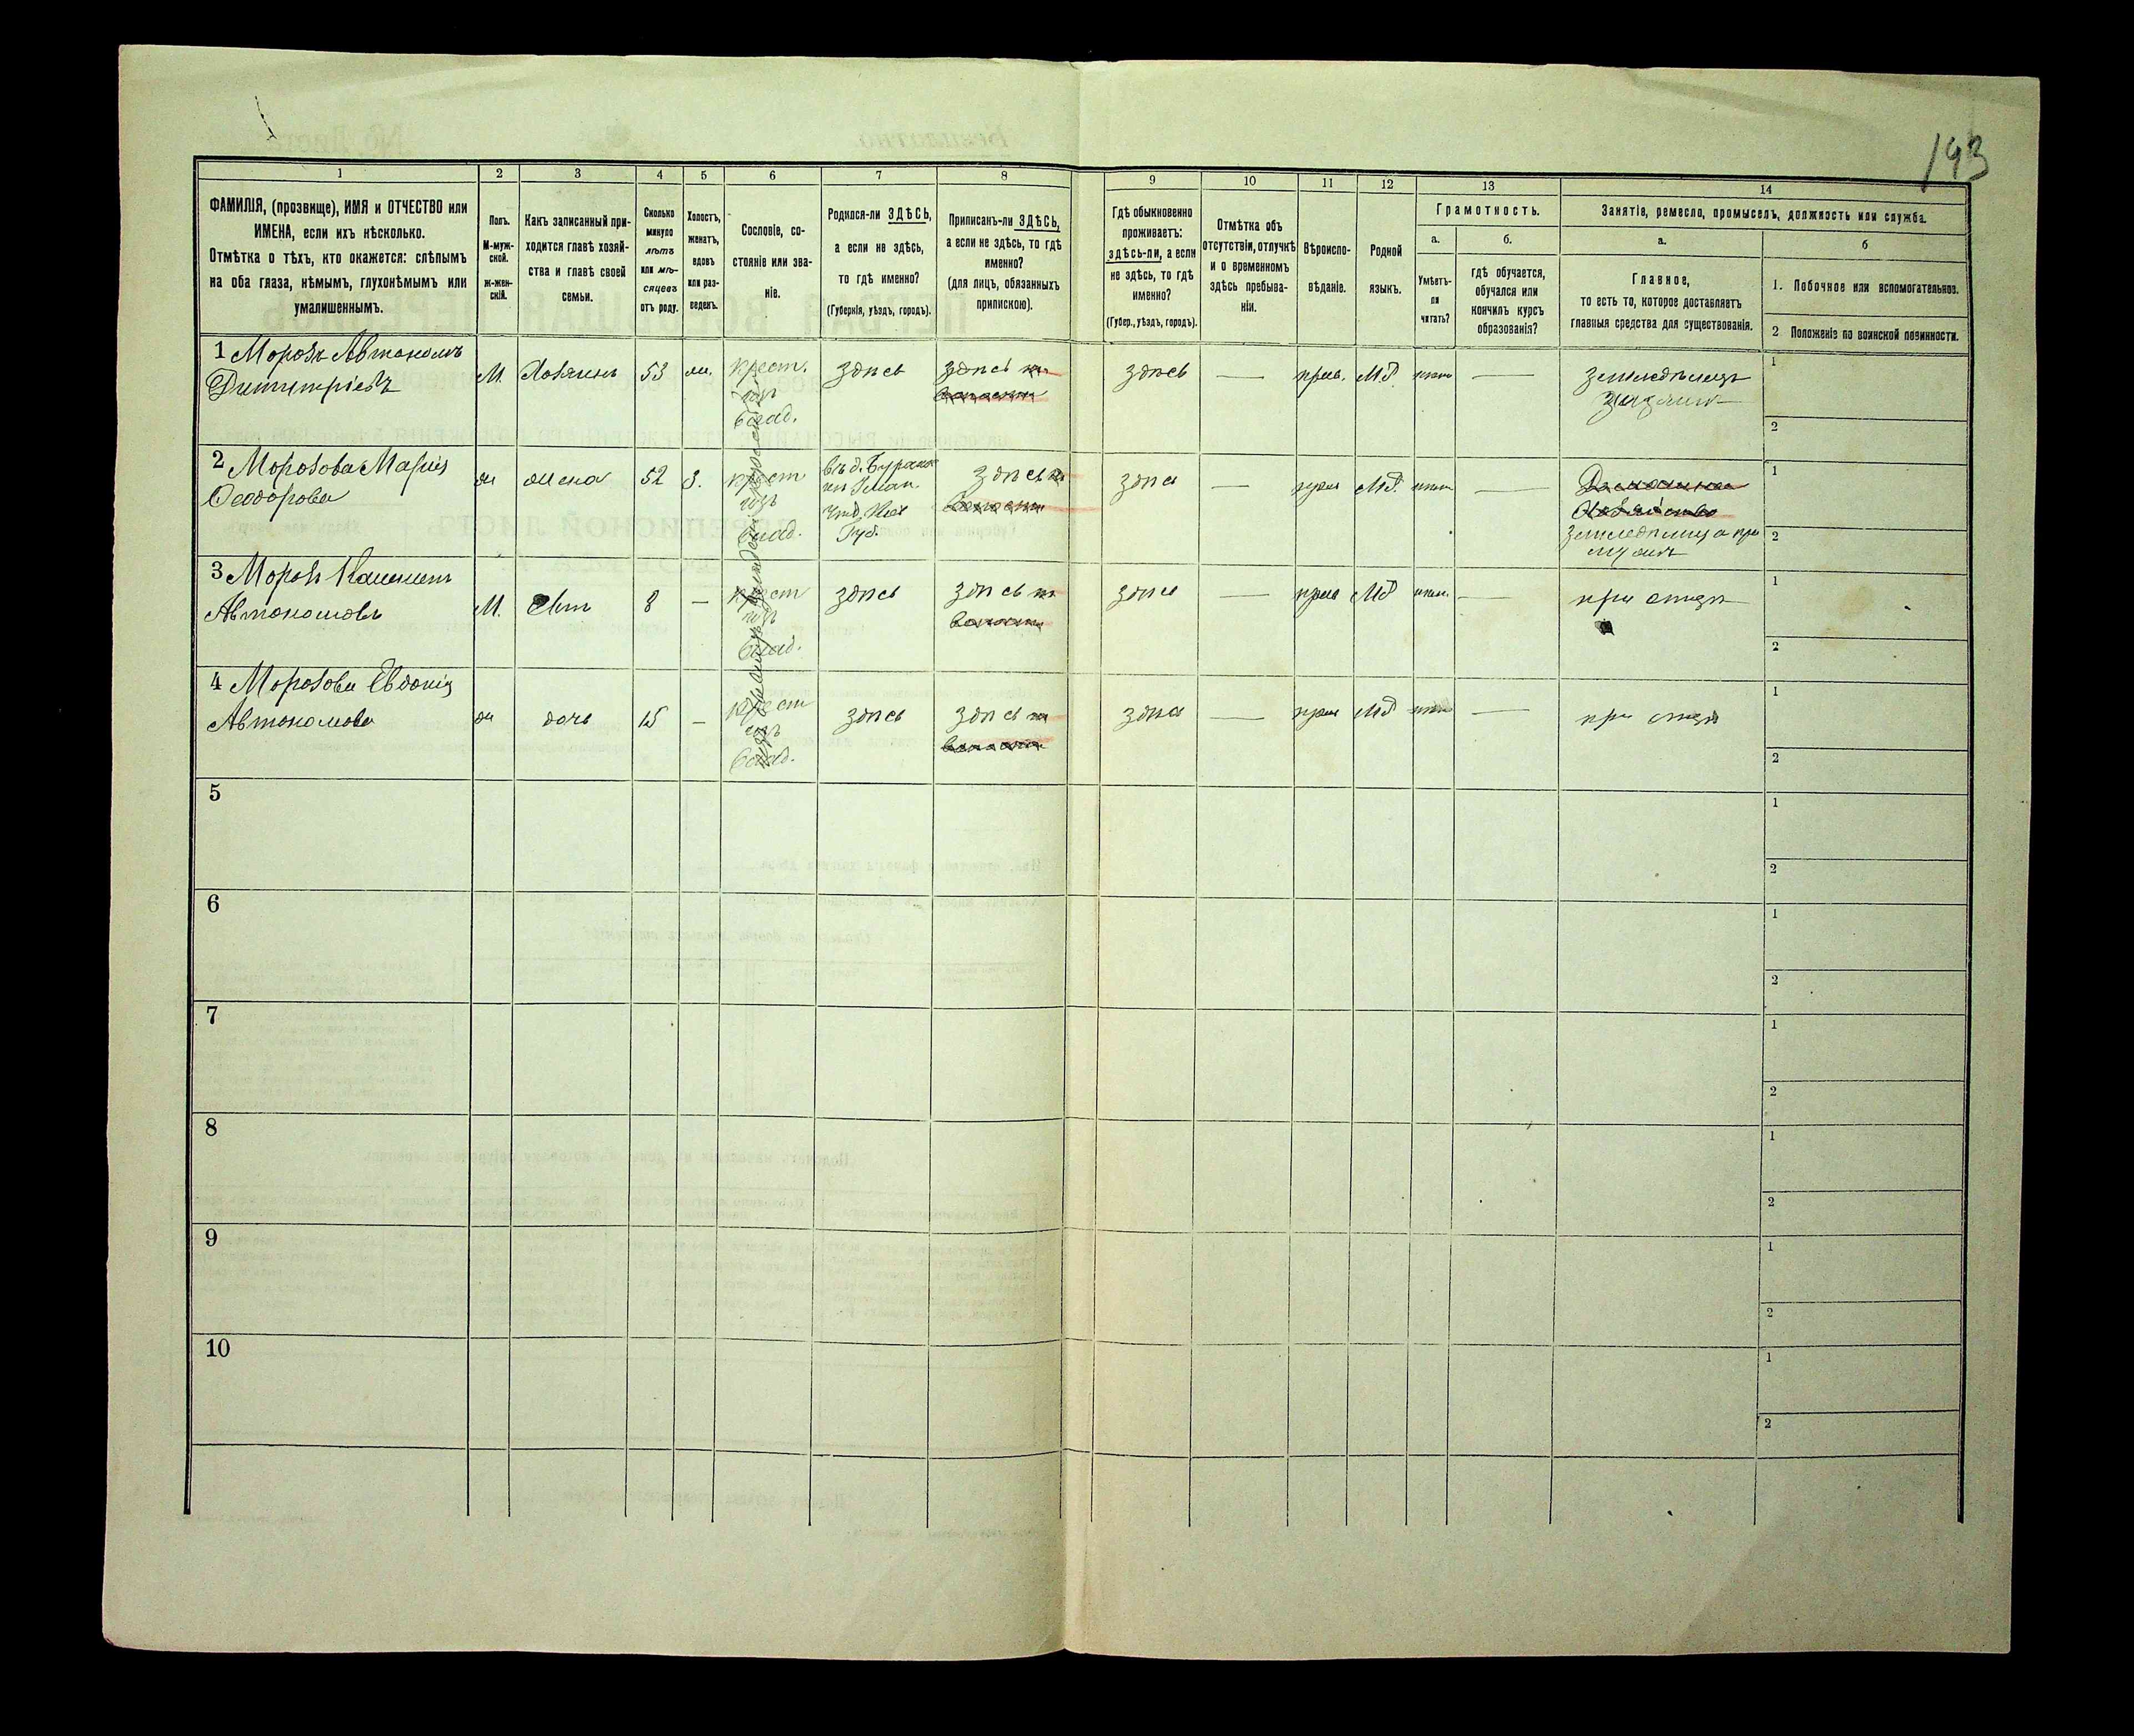 193
1
2
3
4
5
6
7
8
9
10
11
12
13
14
ФАМИЛІЯ, (прозвище), ИМЯ и ОТЧЕСТВО или
ИМЕНА, если ихъ нѣсколько.
Отмѣтка о тѣхъ, кто окажется: слѣпымъ
на оба глаза, нѣмымъ, глухонѣмымъ или
умалишеннымъ.
Полъ.
М-муж-
ской.
ж-жен-
скій.
Какъ записанный при-
ходится главѣ хозяй-
ства и главѣ своей
семьи.
Сколько
минуло
лѣтъ
или мѣ-
сяцевъ
отъ роду.
Холостъ,
женатъ,
вдовъ
или раз-
веденъ.
Сословіе, со-
стояніе или зва-
ніе.
Родился-ли ЗДѢСЬ,
а если не здѣсь,
то гдѣ именно?
(Губернія, уѣздъ, городъ).
Приписанъ-ли ЗДѢСЬ,
а если не здѣсь, то гдѣ
именно?
(для лицъ, обязанныхъ
припискою).
Гдѣ обыкновенно
проживаетъ:
здѣсь-ли, а если
не здѣсь, то гдѣ
именно?
(Губер., уѣздъ, городъ).
Отмѣтка объ
отсутствіи, отлучкѣ
и о временномъ
здѣсь пребыва-
ніи.
Вѣроиспо-
вѣданіе.
Родной
языкъ.
Грамотность.
а.
б.
Умѣетъ-
ли
читать?
гдѣ обучается,
обучался или
кончилъ курсъ
образованія?
Занятіе, ремесло, промыселъ, должность или служба.
а.
б
Главное,
то есть то, которое доставляетъ
главныя средства для существованія.
1. Побочное или вспомогательное.
2 Положеніе по воинской повинности.
1 Морозъ Автономъ
Димитріевъ
М.
Хозяинъ
53
ж.
крест.
изъ
влад.
здѣсь
здѣсь
здѣсь
—
прав.
Мл.
нѣтъ
—
земледѣлецъ
хозяинъ
1
2
2 Морозова Марія
Ѳеодорова
ж
жена
52
З.
крест
изъ
влад.
Губ.
здѣсь
здѣсь
—
прав
Мл.
нѣтъ
—
Домашнее
хозяйство
земледѣлица при
мужѣ
1
2
3 Морозъ
Автономовъ
М.
сынъ
8
—
крест
изъ
влад.
здѣсь
здѣсь
здѣсь
—
прав
Мл
нѣтъ
—
при отцѣ
1
2
4 Морозова Евдокія
Автономова
ж
дочь
15
—
Крест
изъ
влад.
здѣсь
здѣсь
здѣсь
—
прав
Мл
нѣтъ
—
при отцѣ
1
2
5
1
2
6
1
2
7
1
2
8
1
2
9
1
2
10
1
2